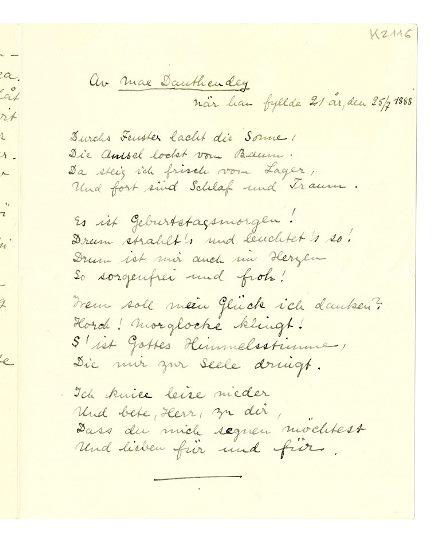 K2116
Av Max Dauthendey
när han fyllde 21 år, den 25/7 1888
Durchs Fenster lacht die Sonne,
Die Amsel lockt vom Baum.
Da steig ich frisch vom Lager,
Und fort sind Schlaf und Traum.
Es ist Geburtstagsmorgen!
Drum strahlt's und leuchtet's so!
Drum ist mir auch im Herzen
So sorgenfrei und froh!
Wem soll mein Glück ich danken?
Horch! Morglocke klingt!
S'ist Gottes Himmelsstimme,
Die mir zur Seele dringt.
Ich kniee leise nieder
Und bete, Herr, zu dir,
Dass du mich segnen möchtest
Und lieben für und für.